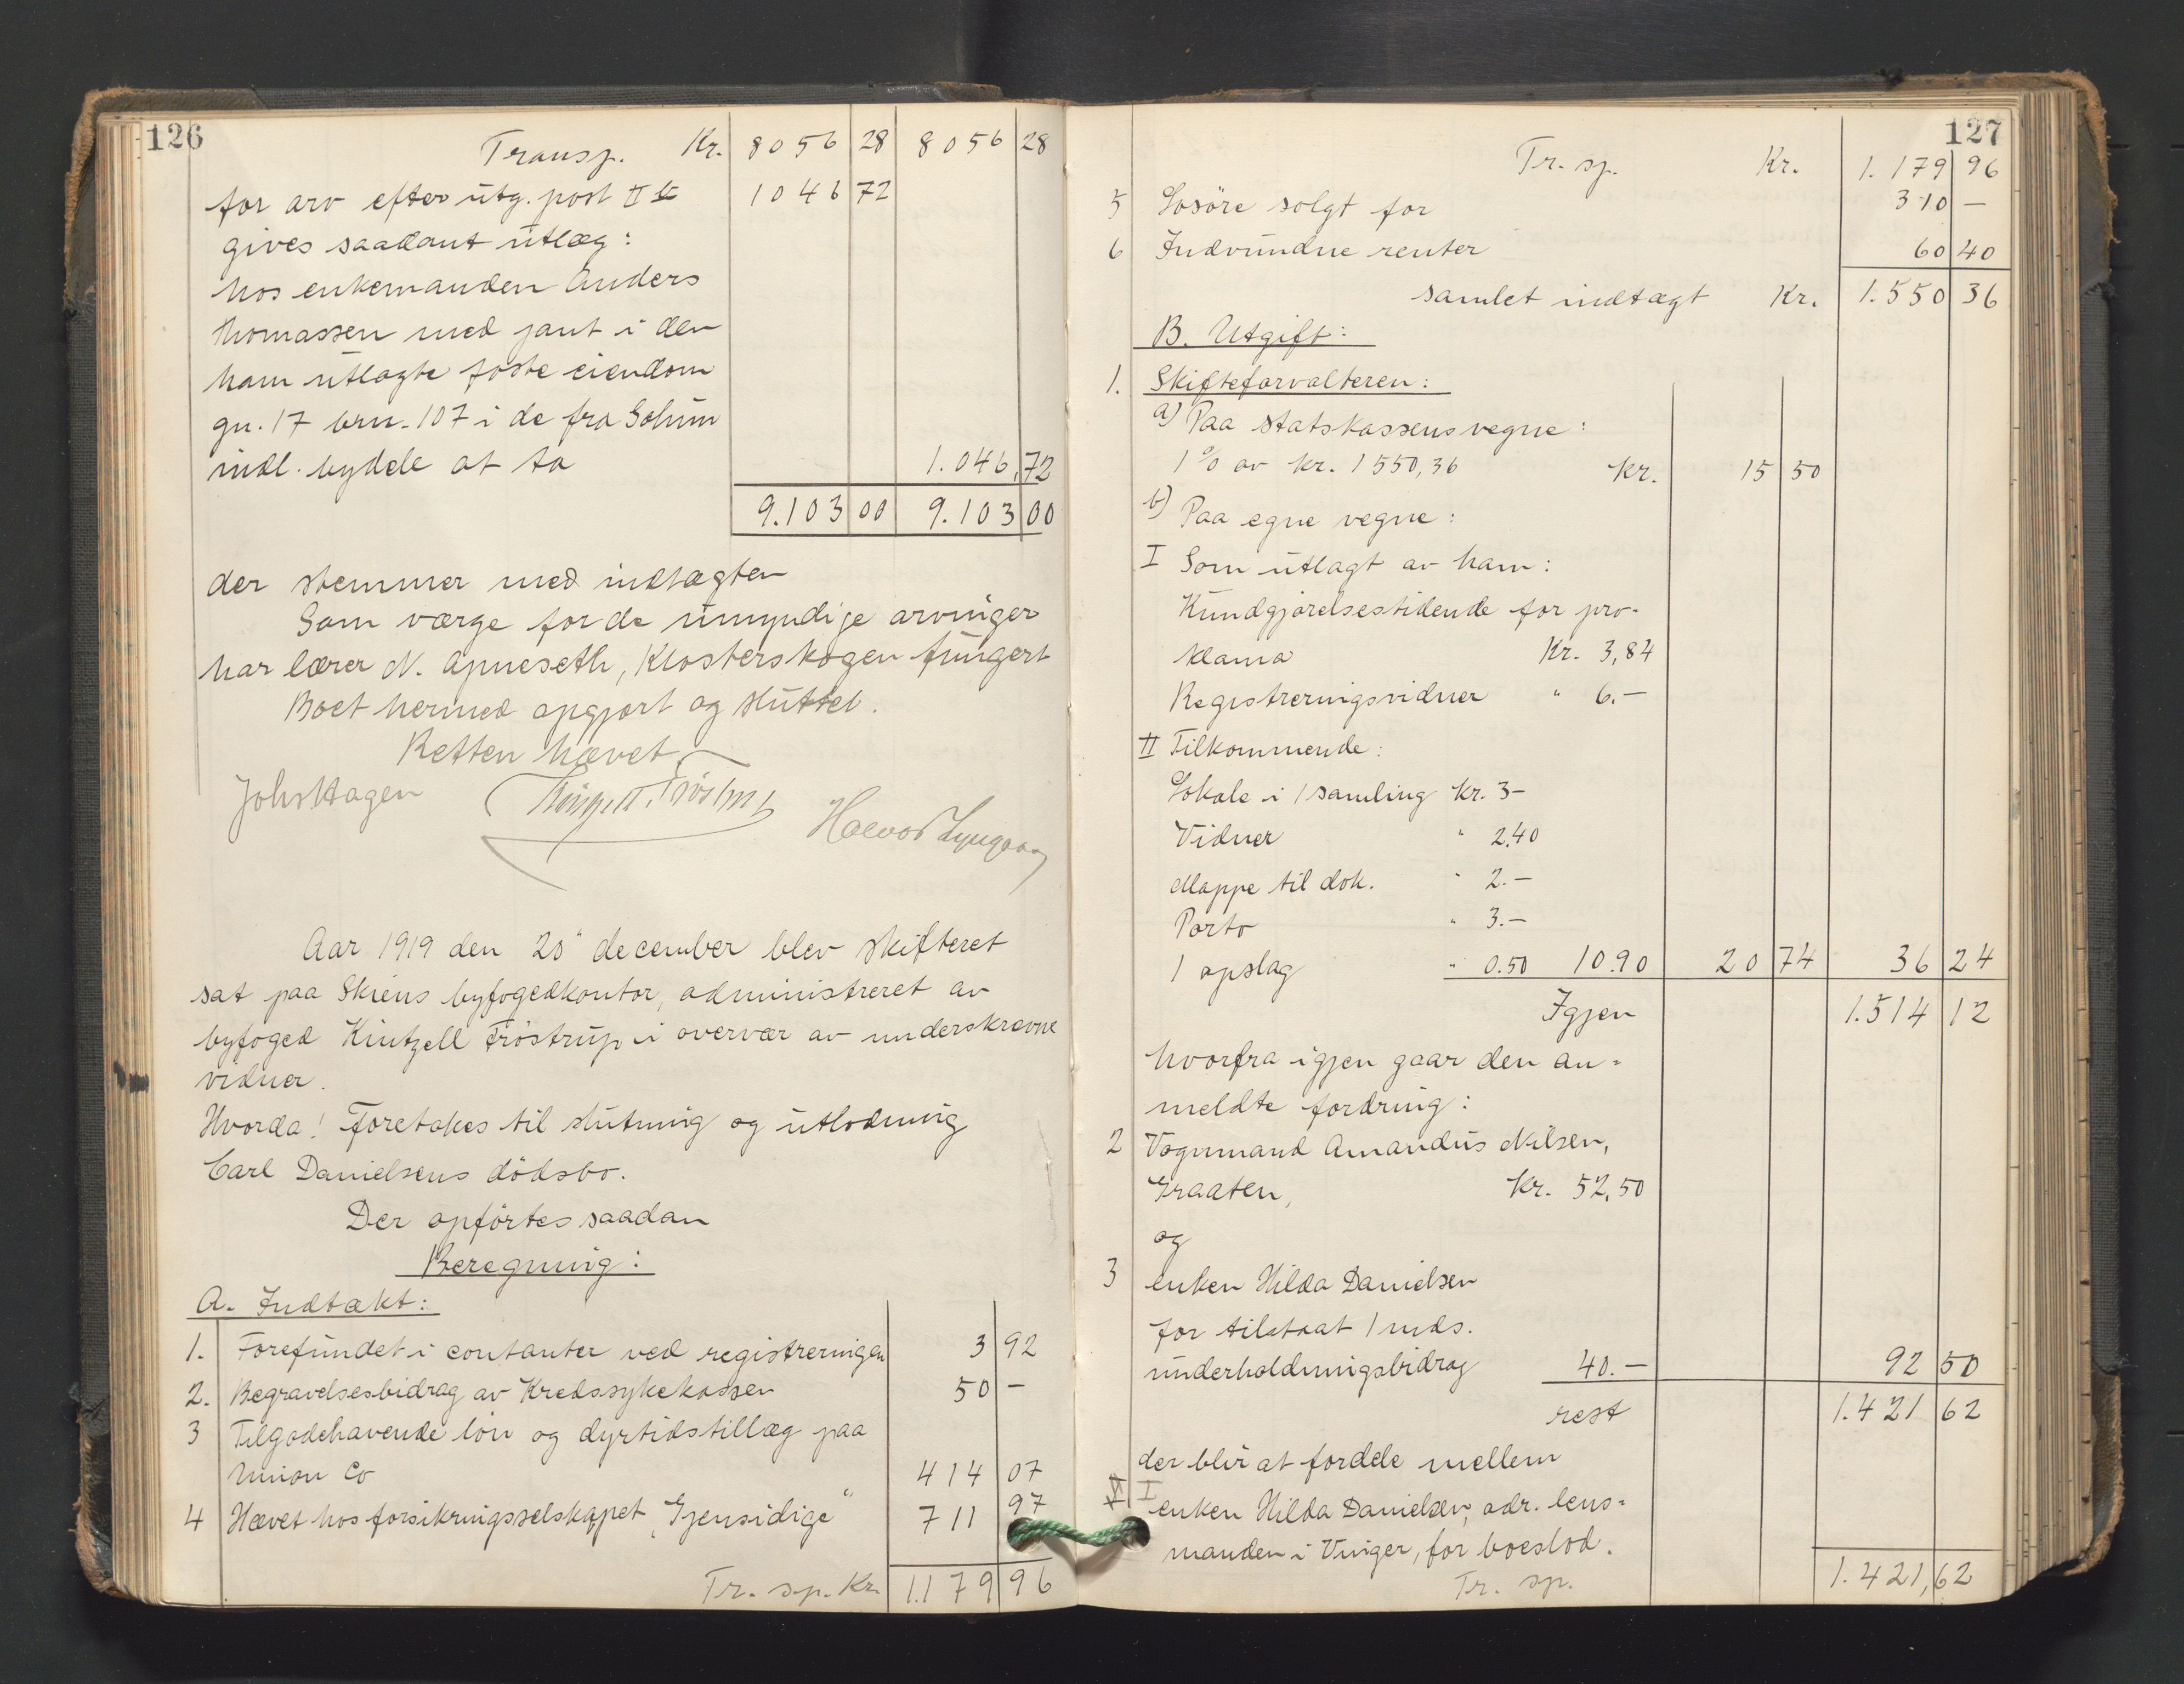 126
Transp. Kr. 8056 28 8056 28
for arv efter utg. post II 1046 72
gives saadant utlæg:
hos enkemanden Anders
Thomassen med pant i den
ham utlagte faste eiendom
gn. 17 brn. 107 i de fra Solum
indl. bydele at ta 1.046,72
9.103 00 9.103 00
der stemmer med indtægten
Som værge for de umyndige arvinger
har lærer N. Apneseth, Klosterskogen fungert
Boet hermed opgjort og sluttet.
Retten hævet.
Johs Hagen Halvor Lyngaas
Aar 1919 den 20" december blev skifteret
sat paa Skiens byfogedkontor, administreret av
byfoged Kintzell Frøstrup i overvær av underskrevne
vidner.
Hvorda! Foretokes til slutning og utlodning
Carl Danielsens dödsbo.
Der opförtes saadan
Beregning:
A. Indtækt:
1. Forefundet i contanter ved registreringen 3 92
2. Begravelsesbidrag av Kredssykekassen 50 –
3 Tilgodehavende lön og dyrtidstillæg paa
Union Co 414 07
4 Hævet hos forsikringsselskapet "Gjensidige" 711 97
Tr. sp. Kr. 1179 96
127
Tr. sp. Kr. 1.179 96
5 Lösöre solgt for 310 –
6 Indvundne renter 60 40
samlet indtægt Kr. 1.550 36
B. Utgift:
1. Skifteforvalteren:
a) Paa statskassens vegne:
1% av kr. 1550,36 Kr. 15 50
b) Paa egne vegne:
I Som utlagt av ham:
Kundgjørelsestidende for pro-
klama Kr. 3,84
Registreringsvidner " 6.–
II Tilkommende:
Lokale i 1 samling Kr. 3–
Vidner " 2.40
Mappe til dok. " 2.–
Porto " 3.–
1 opslag " 0.50 10.90 20 74 36 24
Igjen 1.514 12
hvorfra igjen gaar den an-
meldte fordring:
2 Vognmand Amandus Nilsen,
Graaten, Kr. 52,50
og
3 enken Hilda Danielsen
for tilstaat 1 mds.
underholdningsbidrag 40.– 92 50
rest 1.421 62
der blir at fordele mellem
I enken Hilda Danielsen, adr. lens-
manden i Vinger, for boeslod.
Tr. sp. 1.421,62